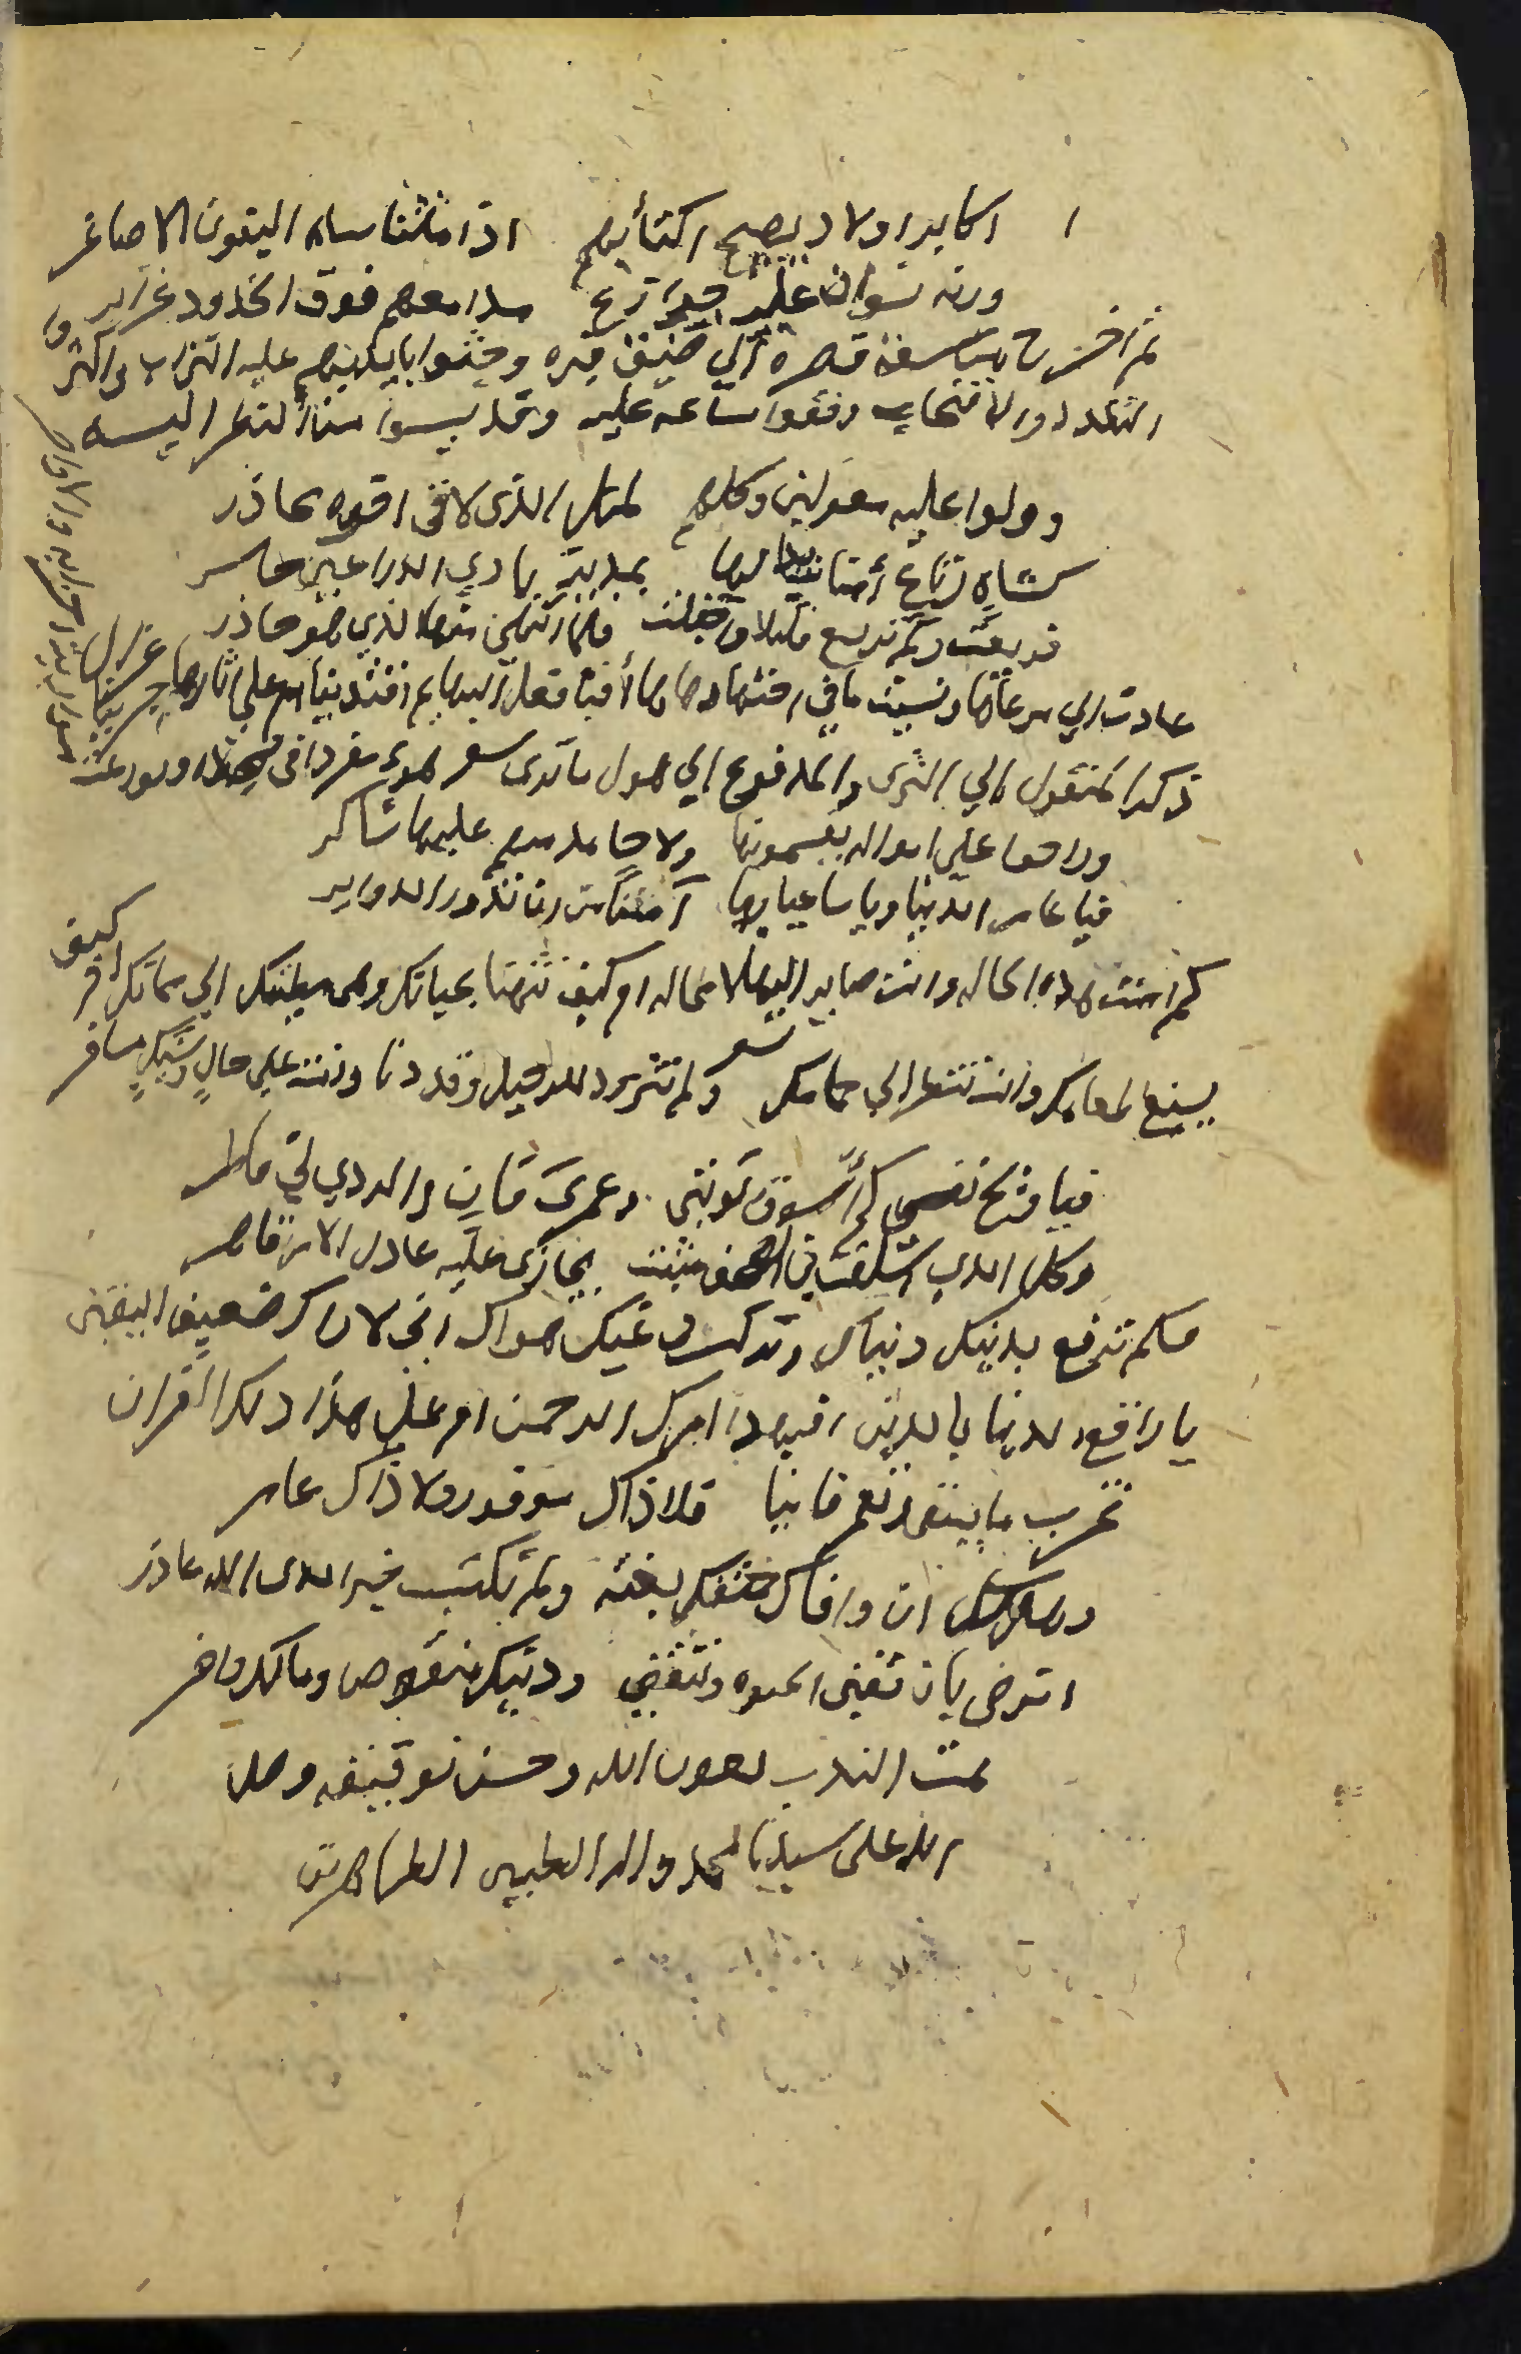 اكابر اولاد يهيج اكتئابهم اذا ما تناساه البنون الاصاغر
ورنه نسوان عليه جوازع مدامعهم فوق الخدود غزاير
ثم اخرج من سعة قصره الي ضيق قبره وحثوا بايديهم عليه التراب واكثروا
التلدد والانتحاب وقفوا ساعه عليه وقد يسوا من النظر اليه
وولوا عليه معولين وكلهم لمثل الذي لاقى اخوه محاذر
كشاه رتاع أمنا بدا لها بمدية بادي الذراعين حاسر
فريعت ولم ترتع قليلا واجفلت فلما انتحى منها الذي هو حاذر
عادت الي مرعاها ونسيت ما في اختها دهاها أفبافعال البهايم اقتدينا ام علي اثارها جرينا عد الي
ذكر المنقول الي الثرى والمدفوع الي هول ما ترى شعر هوى مفردا في لحده وتوزعت
وراحوا علي امواله يقسمونها ولا حامد منهم عليها شاكر
فيا عامر الدنيا ويا ساعيا لها آمنا من ان تدور الدواير
كيف
كم امنت هذه الحاله وانت صاير اليها لا محاله ام كيف تتهنا بحياتك وهي مطيتك الي مماتك ام كيف
يسيغ طعامك وانت تنتظر الي حمامك شعر ولم تتزود للرحيل وقد دنا وانت علي حالٍ وشيكٍ مسافر
فيا ويح نفسي كم أسوف توبتي وعمري فانٍ والردي لي ناظر
وكل الذي اسلفت في الصحف مثبت يجازي عليه عادل الامر قاهر
فكم ترقع بدينك دنياك وتركب في غيك هواك اني لاراك ضعيف اليقين
يا راقع الدنيا بالدين افبهذا امرك الرحمن ام على هذا دلك القران
تخرب ما يبقى وتعمر فانيا فلا ذاك موفور ولا ذاك عامر
وهل لك ان وافاك حتفك بغته ولم تكتسب خيرا لدى الله عاذر
اترضي بان تفنى الحيوه وتنقضي ودينك منقوص ومالك وافر
تمت الندب بعون الله وحسن توفيقه وصلا
الله على سيدنا محمد واله الطيبين الطاهرين